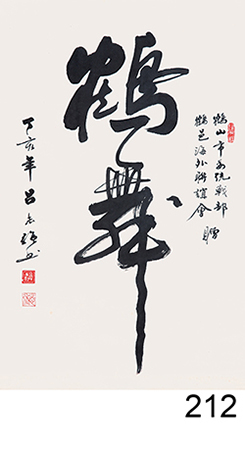 鶴山市委統戰部
鶴邑海外聯誼會 贈
鶴舞
丁亥年 呂志強书
212